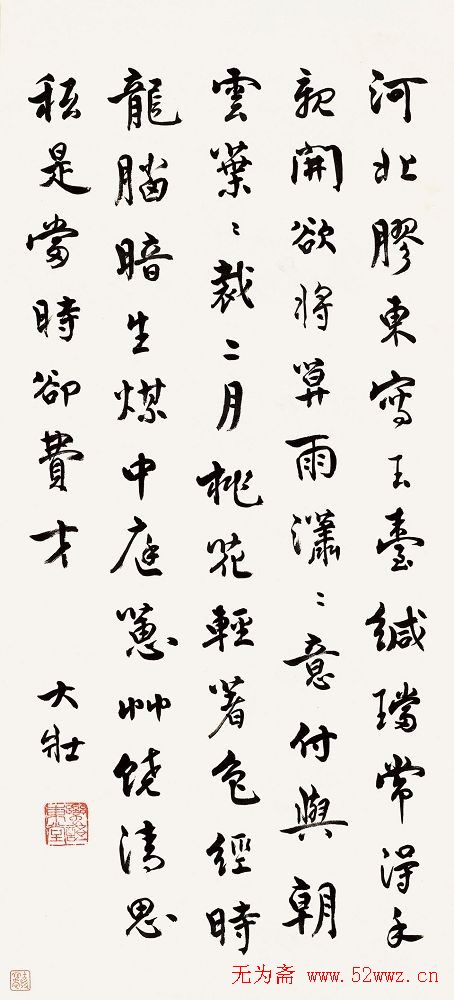 河北膠東寫玉臺緘璫常得手
親開欲將算雨瀟〻意付與朝
雲葉〻裁二月桃花輕著色經時
龍腦暗生煤中庭蕙艸饒清思
秖是當時卻費才
大壯
无为斋 www.52wwz.cn